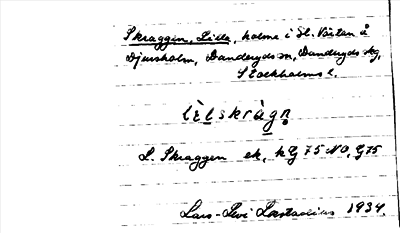 Skraggen, Lilla, holme i St. Värtan å
Djursholm, Danderyds sn, Danderyds skg,
Stockholms l.
lìlskràgn
L. Skraggen ek, hg 75 NO, G75
Lars-Levi Læstadius 1934.